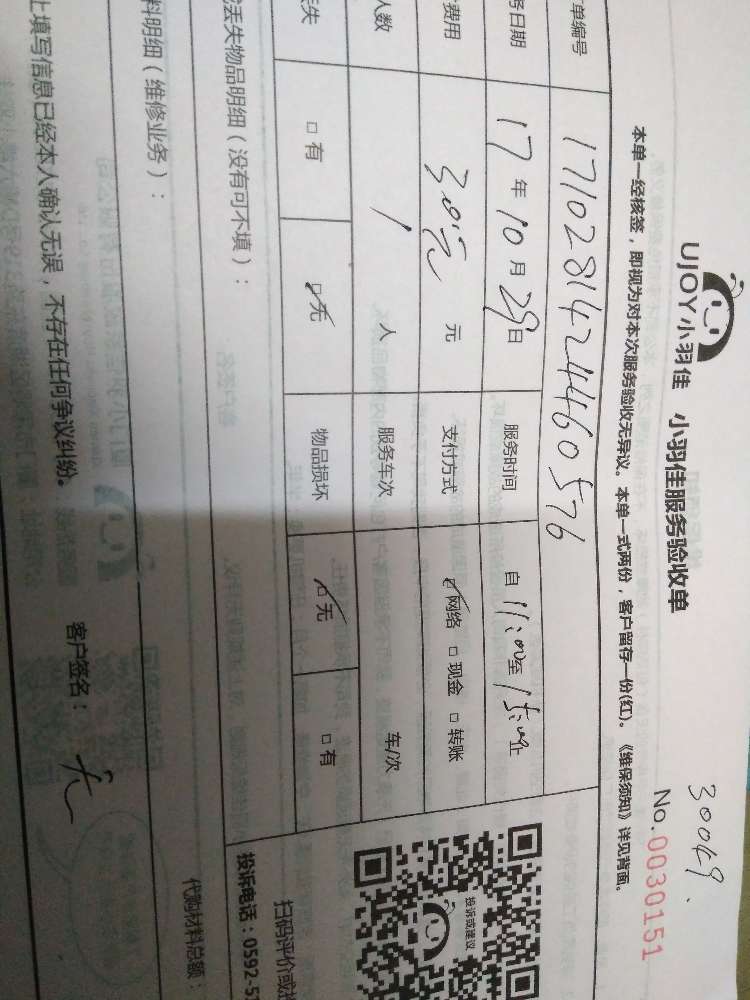 30049.
UJOY小羽佳 小羽佳服务验收单
No.0030151
本单一经核签，即视为对本次服务验收无异议。本单一式两份，客户留存一份(红)。《维保须知》详见背面。
单编号 1710281424460576
务日期 17年10月29日 服务时间 自11:00至15:00止
费用 元 支付方式 ☑网络 □现金 □转账
人数 1人 服务车次 车/次
丢失 □有 ☑无 物品损坏 ☑无 □有
丢失物品明细（没有可不填）：
扫码评价或投
投诉或建议
投诉电话：0592-5
料明细（维修业务）：
代购材料总额：
上填写信息已经本人确认无误，不存在任何争议纠纷。
客户签名：